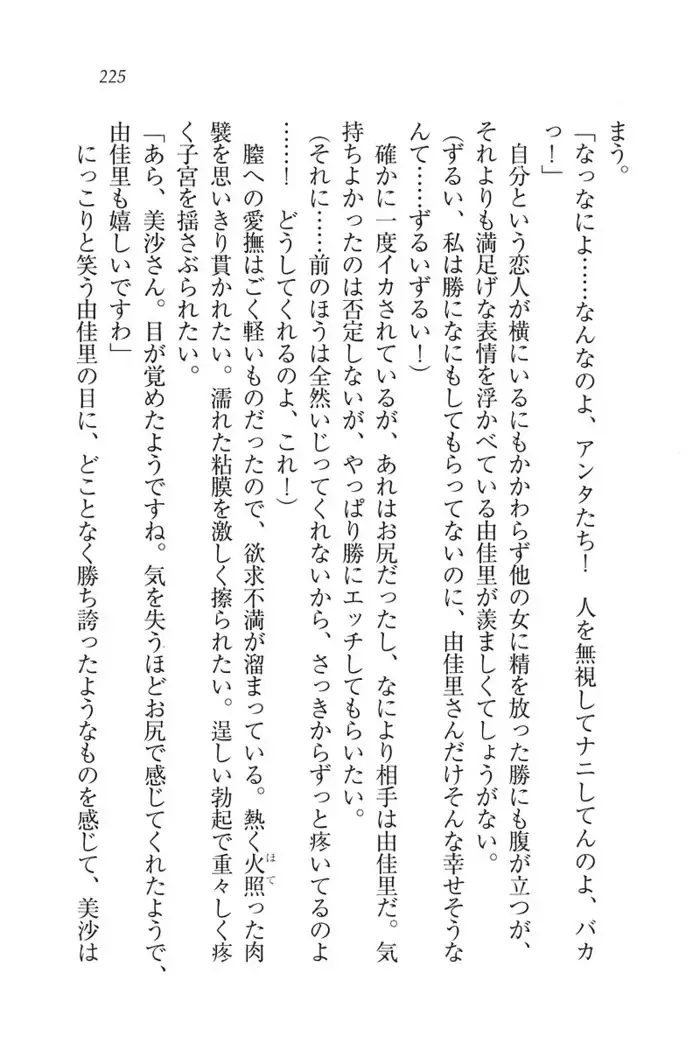 225
まう。
「なっなによ……なんなのよ、アンタたち！　人を無視してナニしてんのよ、バカ
っ！」
自分という恋人が横にいるにもかかわらず他の女に精を放った勝にも腹が立つが、
それよりも満足げな表情を浮かべている由佳里が羨ましくてしょうがない。
（ずるい、私は勝になにもしてもらってないのに、由佳里さんだけそんな幸せそうな
んて……ずるいずるい！）
確かに一度イカされているが、あれはお尻だったし、なにより相手は由佳里だ。気
持ちよかったのは否定しないが、やっぱり勝にエッチしてもらいたい。
（それに……前のほうは全然いじってくれないから、さっきからずっと疼いてるのよ
……！　どうしてくれるのよ、これ！）
膣への愛撫はごく軽いものだったので、欲求不満が溜まっている。熱く火照った肉
ほて
襞を思いきり貫かれたい。濡れた粘膜を激しく擦られたい。逞しい勃起で重々しく疼
く子宮を揺さぶられたい。
「あら、美沙さん。目が覚めたようですね。気を失うほどお尻で感じてくれたようで、
由佳里も嬉しいですわ」
にっこりと笑う由佳里の目に、どことなく勝ち誇ったようなものを感じて、美沙は